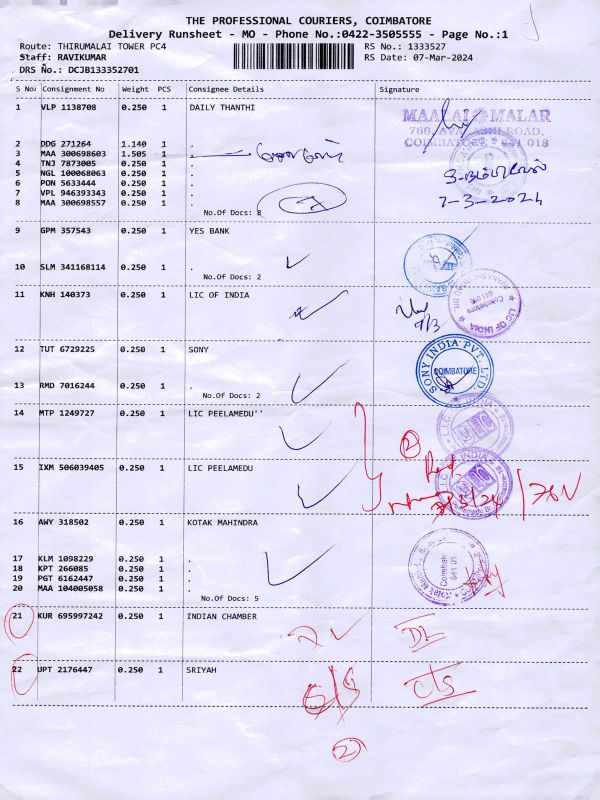 THE PROFESSIONAL COURIERS, COIMBATORE
Delivery Runsheet - MO - Phone No.:0422-3505555 - Page No.:1
Route: THIRUMALAI TOWER PC4 RS No.: 1333527
Staff: RAVIKUMAR RS Date: 07-Mar-2024
DRS No.: DCJB133352701
S No: Consignment No Weight PCS Consignee Details Signature
1 VLP 1138708 0.250 1 DAILY THANTHI
MAALAI MALAR
COIMBATORE - 641 018
2 DDG 271264 1.140 1 .
3 MAA 300698603 1.505 1
4 TNJ 7873005 0.250 1 .
5 NGL 100068063 0.250 1 .
6 PON 5633444 0.250 1 .
7 VPL 946393343 0.250 1 .
8 MAA 300698557 0.250 1 .
7-3-2024
No.Of Docs: 8
7
9 GPM 357543 0.250 1 YES BANK
10 SLM 341168114 0.250 1 .
No.Of Docs: 2
11 KNH 140373 0.250 1 LIC OF INDIA
7/3
LIC OF INDIA
Coimbatore
12 TUT 6729225 0.250 1 SONY
SONY INDIA PVT. LTD
COIMBATORE
13 RMD 7016244 0.250 1 .
No.Of Docs: 2
14 MTP 1249727 0.250 1 LIC PEELAMEDU''
2
15 IXM 506039405 0.250 1 LIC PEELAMEDU
LIC
16 AWY 318502 0.250 1 KOTAK MAHINDRA
17 KLM 1098229 0.250 1 .
18 KPT 266085 0.250 1 .
19 PGT 6162447 0.250 1 .
20 MAA 104005058 0.250 1 .
No.Of Docs: 5
21 KUR 695997242 0.250 1 INDIAN CHAMBER
DL
22 UPT 2176447 0.250 1 SRIYAH
2